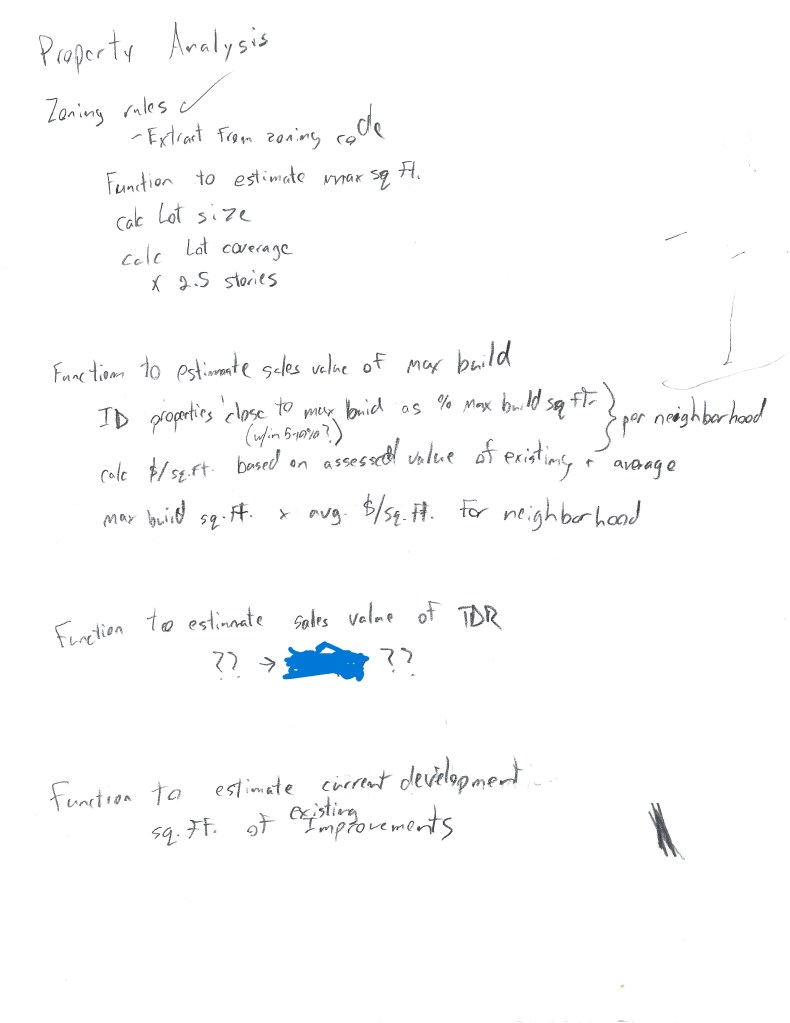 Property Analysis
Zoning rules ✓
- Extract from zoning code
Function to estimate max sq ft.
calc Lot size
calc Lot coverage
x 2.5 stories
Function to estimate sales value of max build
ID properties close to max buid as % max build sq ft.
(w/in 5-10%?)
} per neighborhood
calc $/sq.ft. based on assessed value of existing + average
max build sq.ft. x avg. $/sq.ft. for neighborhood
Function to estimate sales value of TDR
?? → ??
Function to estimate current development
sq.ft. of existing improvements